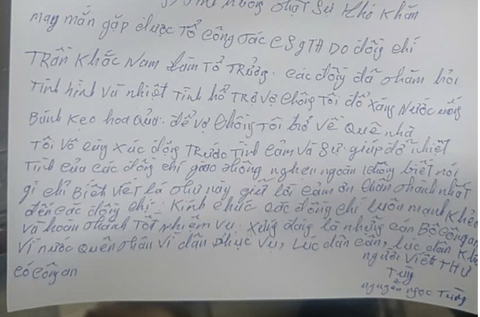 thật sự khó khăn
may mắn gặp được Tổ công tác CSGTH Do đồng chí
TRần Khắc Nam làm Tổ TRưởng. các đồng đã thăm hỏi
Tình hình và nhiệt Tình hỗ TRợ vợ chồng Tôi đổ xăng Nước uống
Bánh kẹo hoa quả. để vợ chồng Tôi trở về quê nhà
Tôi vô cùng xúc động TRước Tình cảm và sự giúp đỡ nhiệt
Tình của các đồng chí giao thông nghẹn ngoan không biết nói
gì chỉ Biết viết lá thư này gửi lời cảm ơn chân thành nhất
đến các đồng chí. Kính chúc các đồng chí luôn mạnh khỏe
và hoàn thành Tốt nhiệm vụ. xứng đáng là những cán Bộ công an
Vì nước quên thân vì dân phục vụ, Lúc dân cần, lúc dân khó
có công an
người Viết THư
Tùng
nguyễn ngọc Tùng